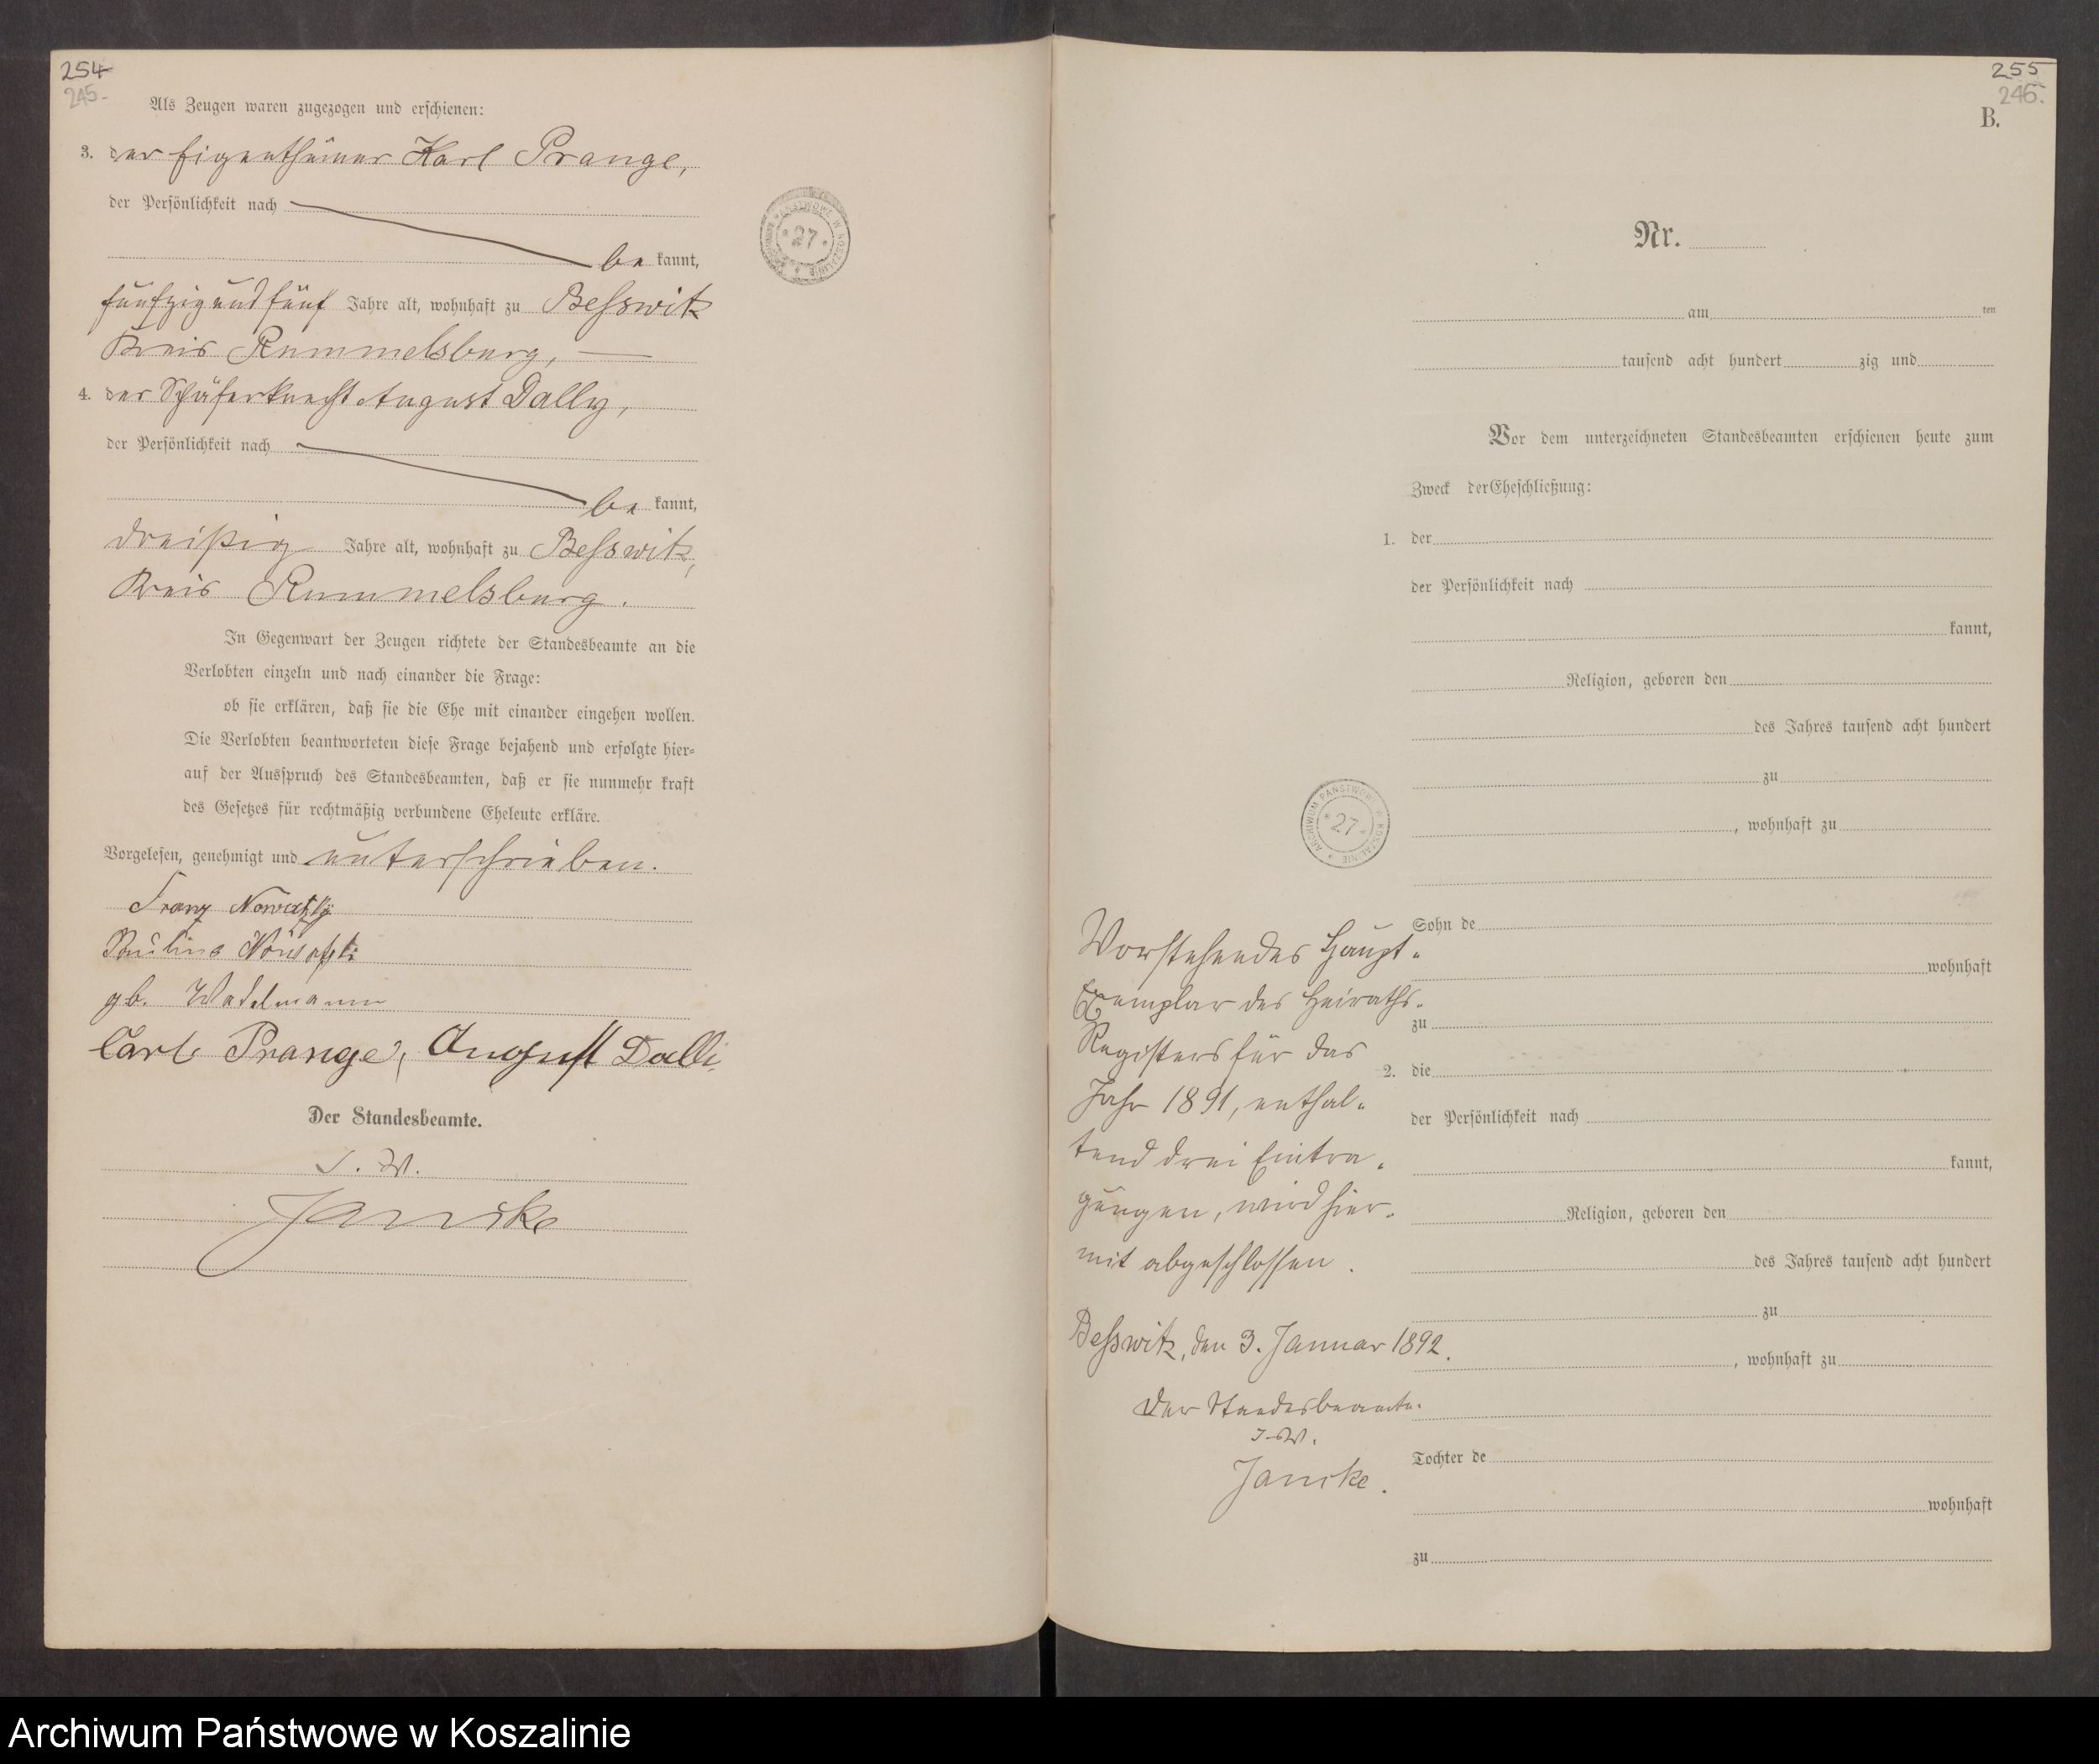 254
245.
Als Zeugen waren zugezogen und erschienen:
3. der Eigenthümer Karl Prange,
der Persönlichkeit nach
be kannt,
fünfzig und fünf Jahre alt, wohnhaft zu Besswitz
Kreis Rummelsburg,
4. der Schäferknecht August Dally,
der Persönlichkeit nach
be kannt,
dreißig Jahre alt, wohnhaft zu Besswitz,
Kreis Rummelsburg.
In Gegenwart der Zeugen richtete der Standesbeamte an die
Verlobten einzeln und nach einander die Frage:
ob sie erklären, daß sie die Ehe mit einander eingehen wollen.
Die Verlobten beantworteten diese Frage bejahend und erfolgte hier-
auf der Ausspruch des Standesbeamten, daß er sie nunmehr kraft
des Gesetzes für rechtmäßig verbundene Eheleute erkläre.
Vorgelesen, genehmigt und unterschrieben.
Franz
Pauline
gb. Wadelmann
Carl Prange, August Dalli
Der Standesbeamte.
I. V.
Jancke
ARCHIWUM PAŃSTWOWE W KOSZALINIE
27
255
246.
B.
Nr.
am ten
tausend acht hundert zig und
Vor dem unterzeichneten Standesbeamten erschienen heute zum
Zweck der Eheschließung:
1. der
der Persönlichkeit nach
kannt,
Religion, geboren den
des Jahres tausend acht hundert
zu
, wohnhaft zu
ARCHIWUM PAŃSTWOWE W KOSZALINIE
27
Sohn de
wohnhaft
zu
2. die
der Persönlichkeit nach
kannt,
Religion, geboren den
des Jahres tausend acht hundert
zu
, wohnhaft zu
Tochter de
wohnhaft
zu
Vorstehendes Haupt-
Exemplar des Heiraths-
Registers für das
Jahr 1891, enthal-
tend drei Eintra-
gungen, wird hier-
mit abgeschlossen.
Besswitz, den 3. Januar 1892.
Der Standesbeamte.
I. V.
Jancke.
Archiwum Państwowe w Koszalinie